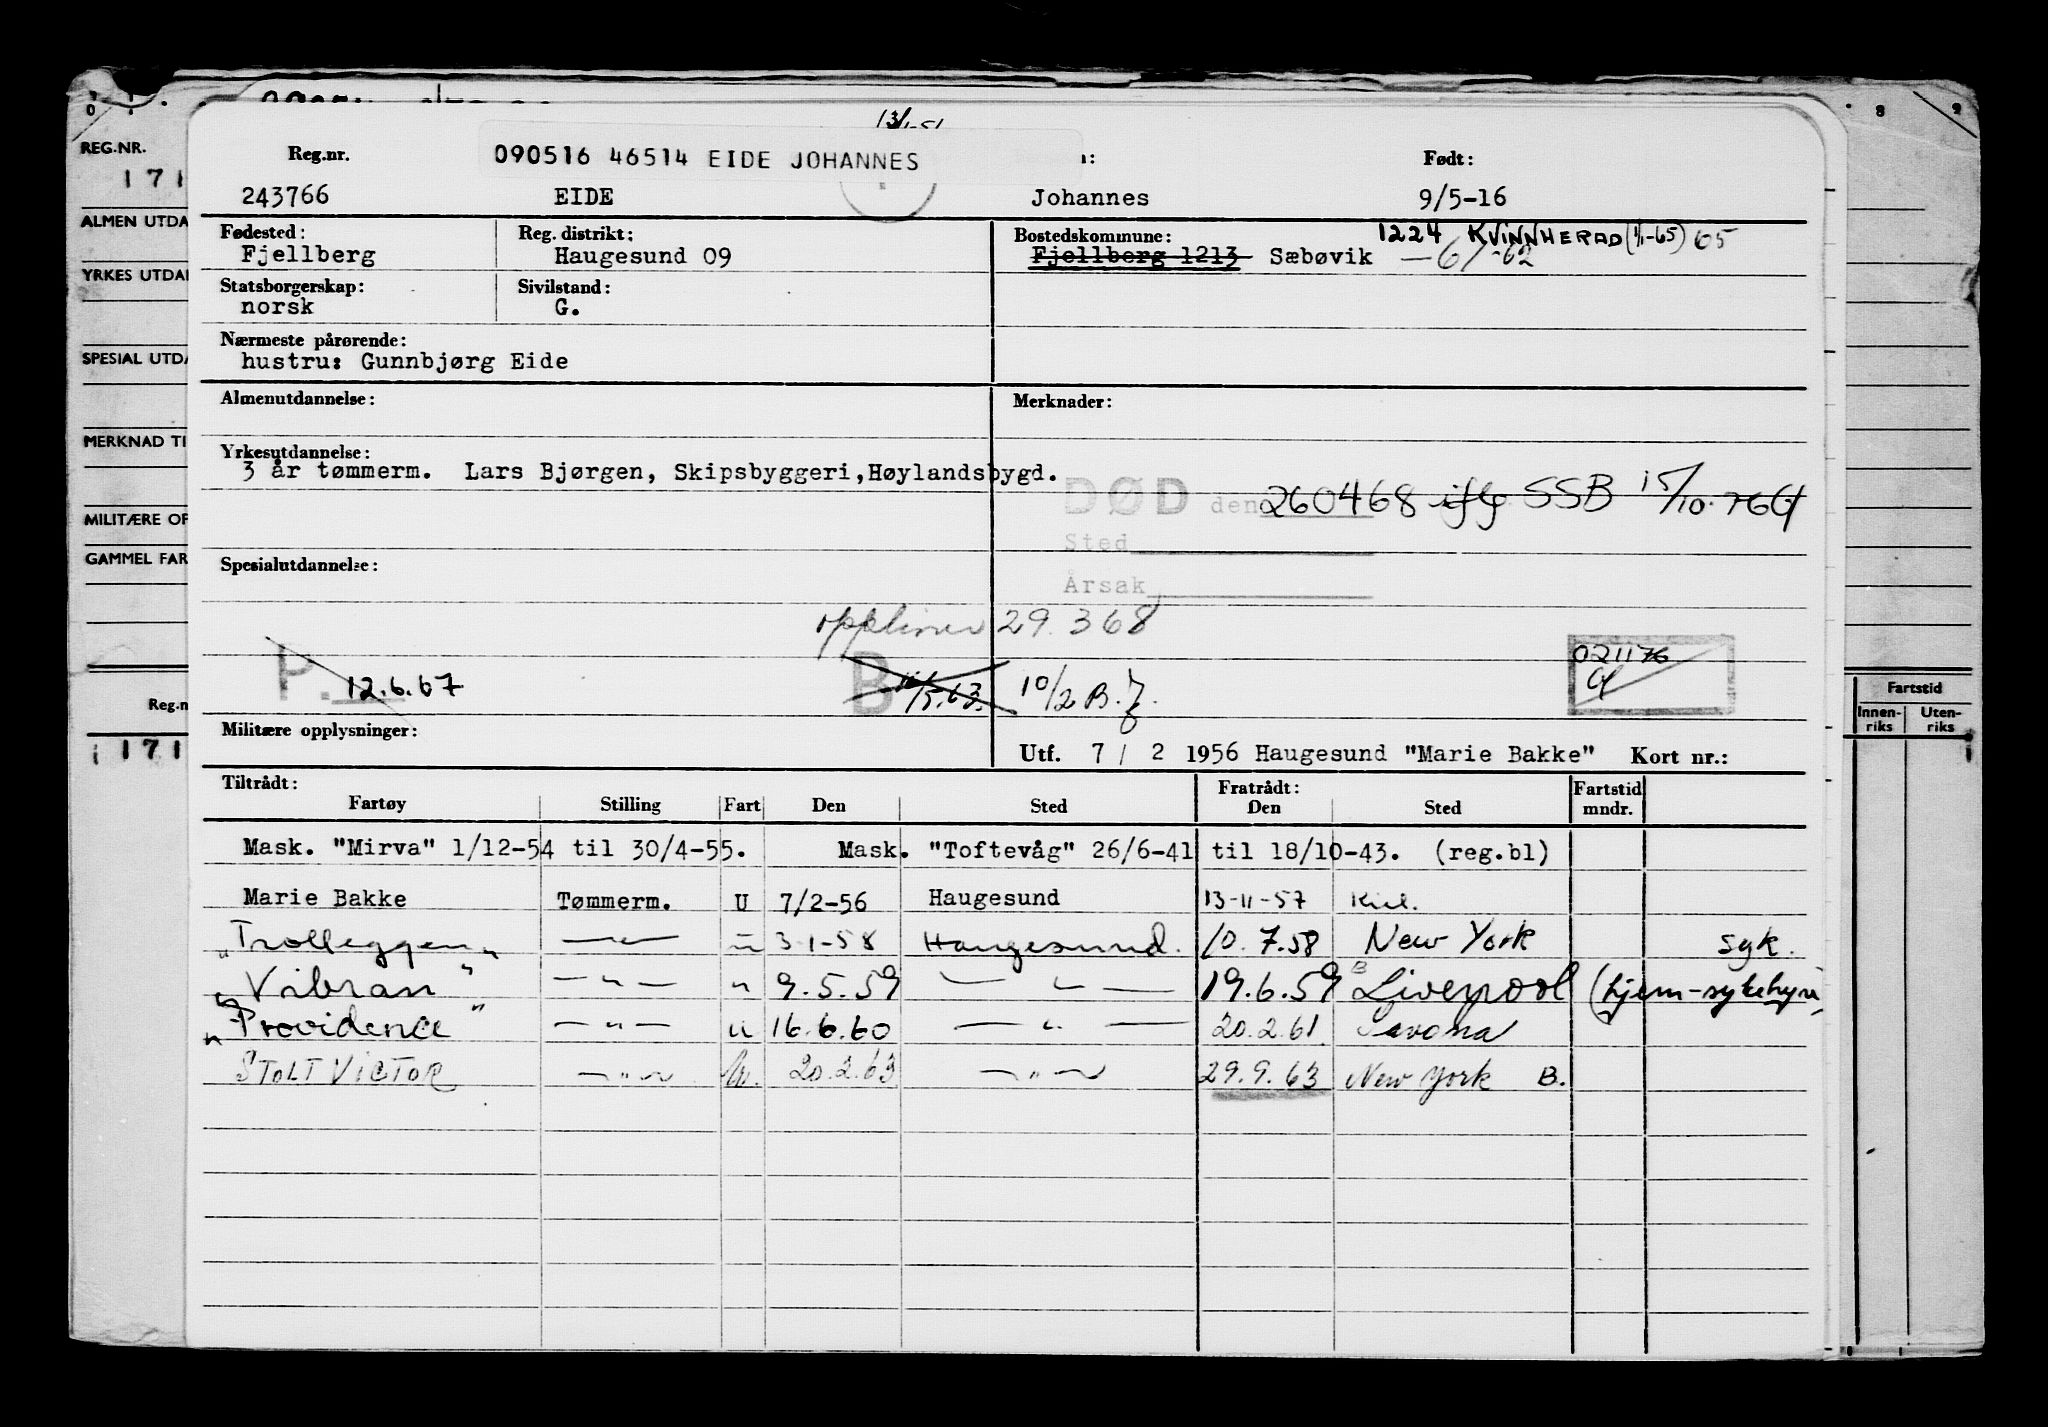 0 1 8 9
13/1-51
REG.NR.
171
ALMEN UTDA
YRKES UTDA
SPESIAL UTDA
MERKNAD TI
MILITÆRE OP
GAMMEL FAR
Reg.n
171
Fartstid
Innen-riks Uten-riks
Reg.nr. 090516 46514 EIDE JOHANNES n: Født:
243766 EIDE Johannes 9/5-16
Fødested: Reg. distrikt: Bostedskommune: 1224 KVINNHERAD (1/1-65) 65
Fjellberg Haugesund 09 Fjellberg 1213 Sæbøvik — 61 -62
Statsborgerskap: Sivilstand:
norsk G.
Nærmeste pårørende:
hustru: Gunnbjørg Eide
Almenutdannelse: Merknader:
Yrkesutdannelse:
3 år tømmerm. Lars Bjørgen, Skipsbyggeri,Høylandsbygd.
DØD den 260468 iflg SSB 15/10.76
Sted
Spesialutdannelse:
Årsak
29.368
P. 12.6.67 B 10/2 B.
021176
Militære opplysninger:
Utf. 7 / 2 1956 Haugesund "Marie Bakke" Kort nr.:
Tiltrådt: Fratrådt: Fartstid
Fartøy Stilling Fart Den Sted Den Sted mndr.
Mask. "Mirva" 1/12-54 til 30/4-55. Mask. "Toftevåg" 26/6-41 til 18/10-43. (reg.bl)
Marie Bakke Tømmerm. U 7/2-56 Haugesund 13-11-57 Kiel.
"Trolleggen" — " — u 3-1-58 Haugesund. 10.7.58 New York syk.
"Vibran" — " — " 9.5.59 — " — 19.6.59 Liverpool (hjem-sykehyre)
"Providence" — " — u 16.6.60 — " — 20.2.61. Savona
STOLT VICTOR — " — U. 20.2.63 — " — 29.9.63 New York B.